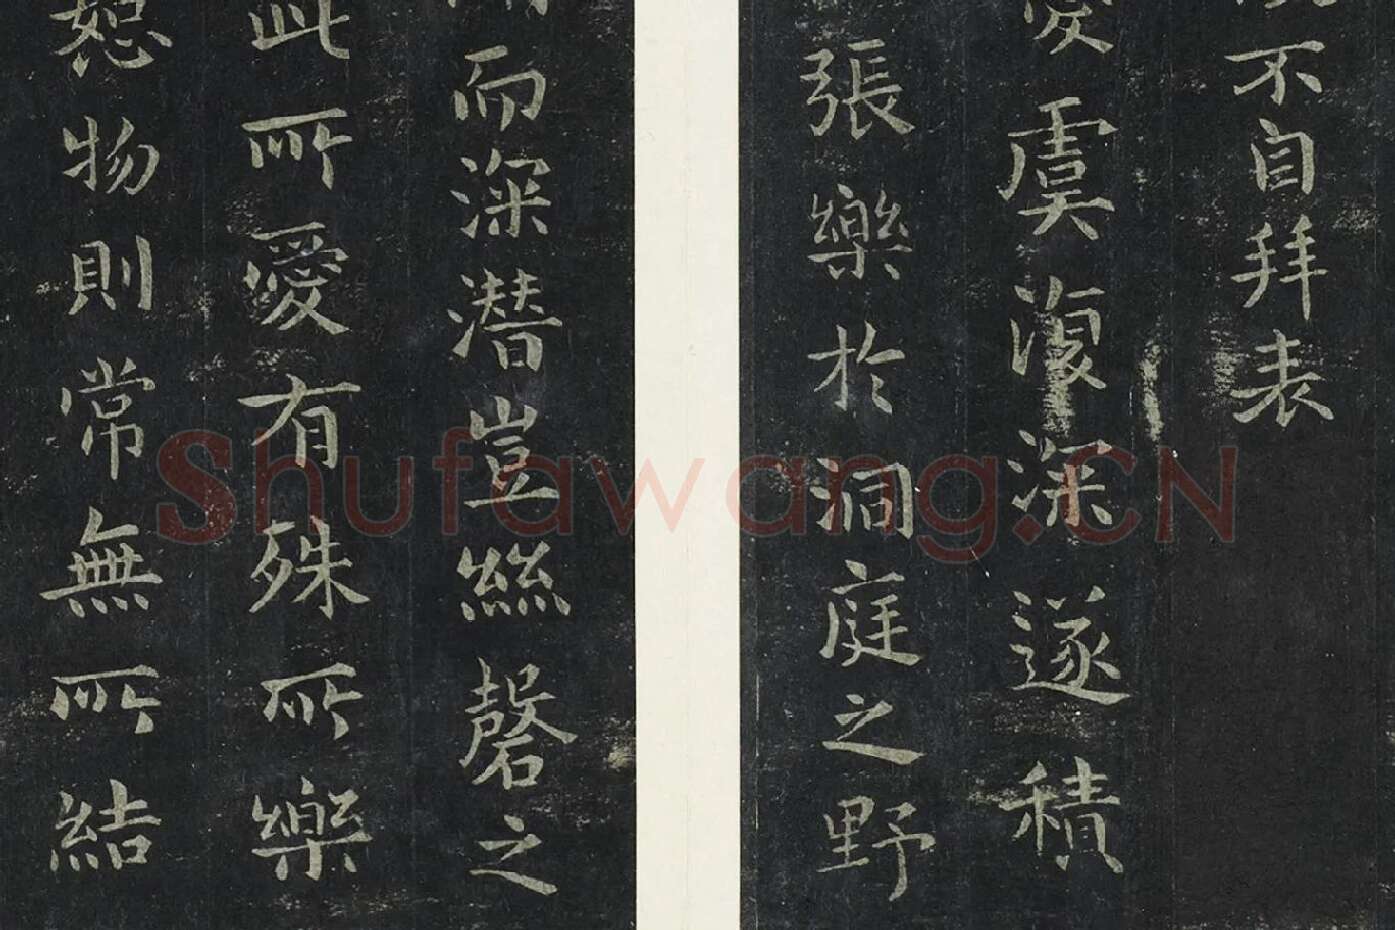 不自拜表
虞復深遂積
張樂於洞庭之野
而深潛豈絲磬之
此所愛有殊所樂
恕物則常無所結
Shufawang.CN